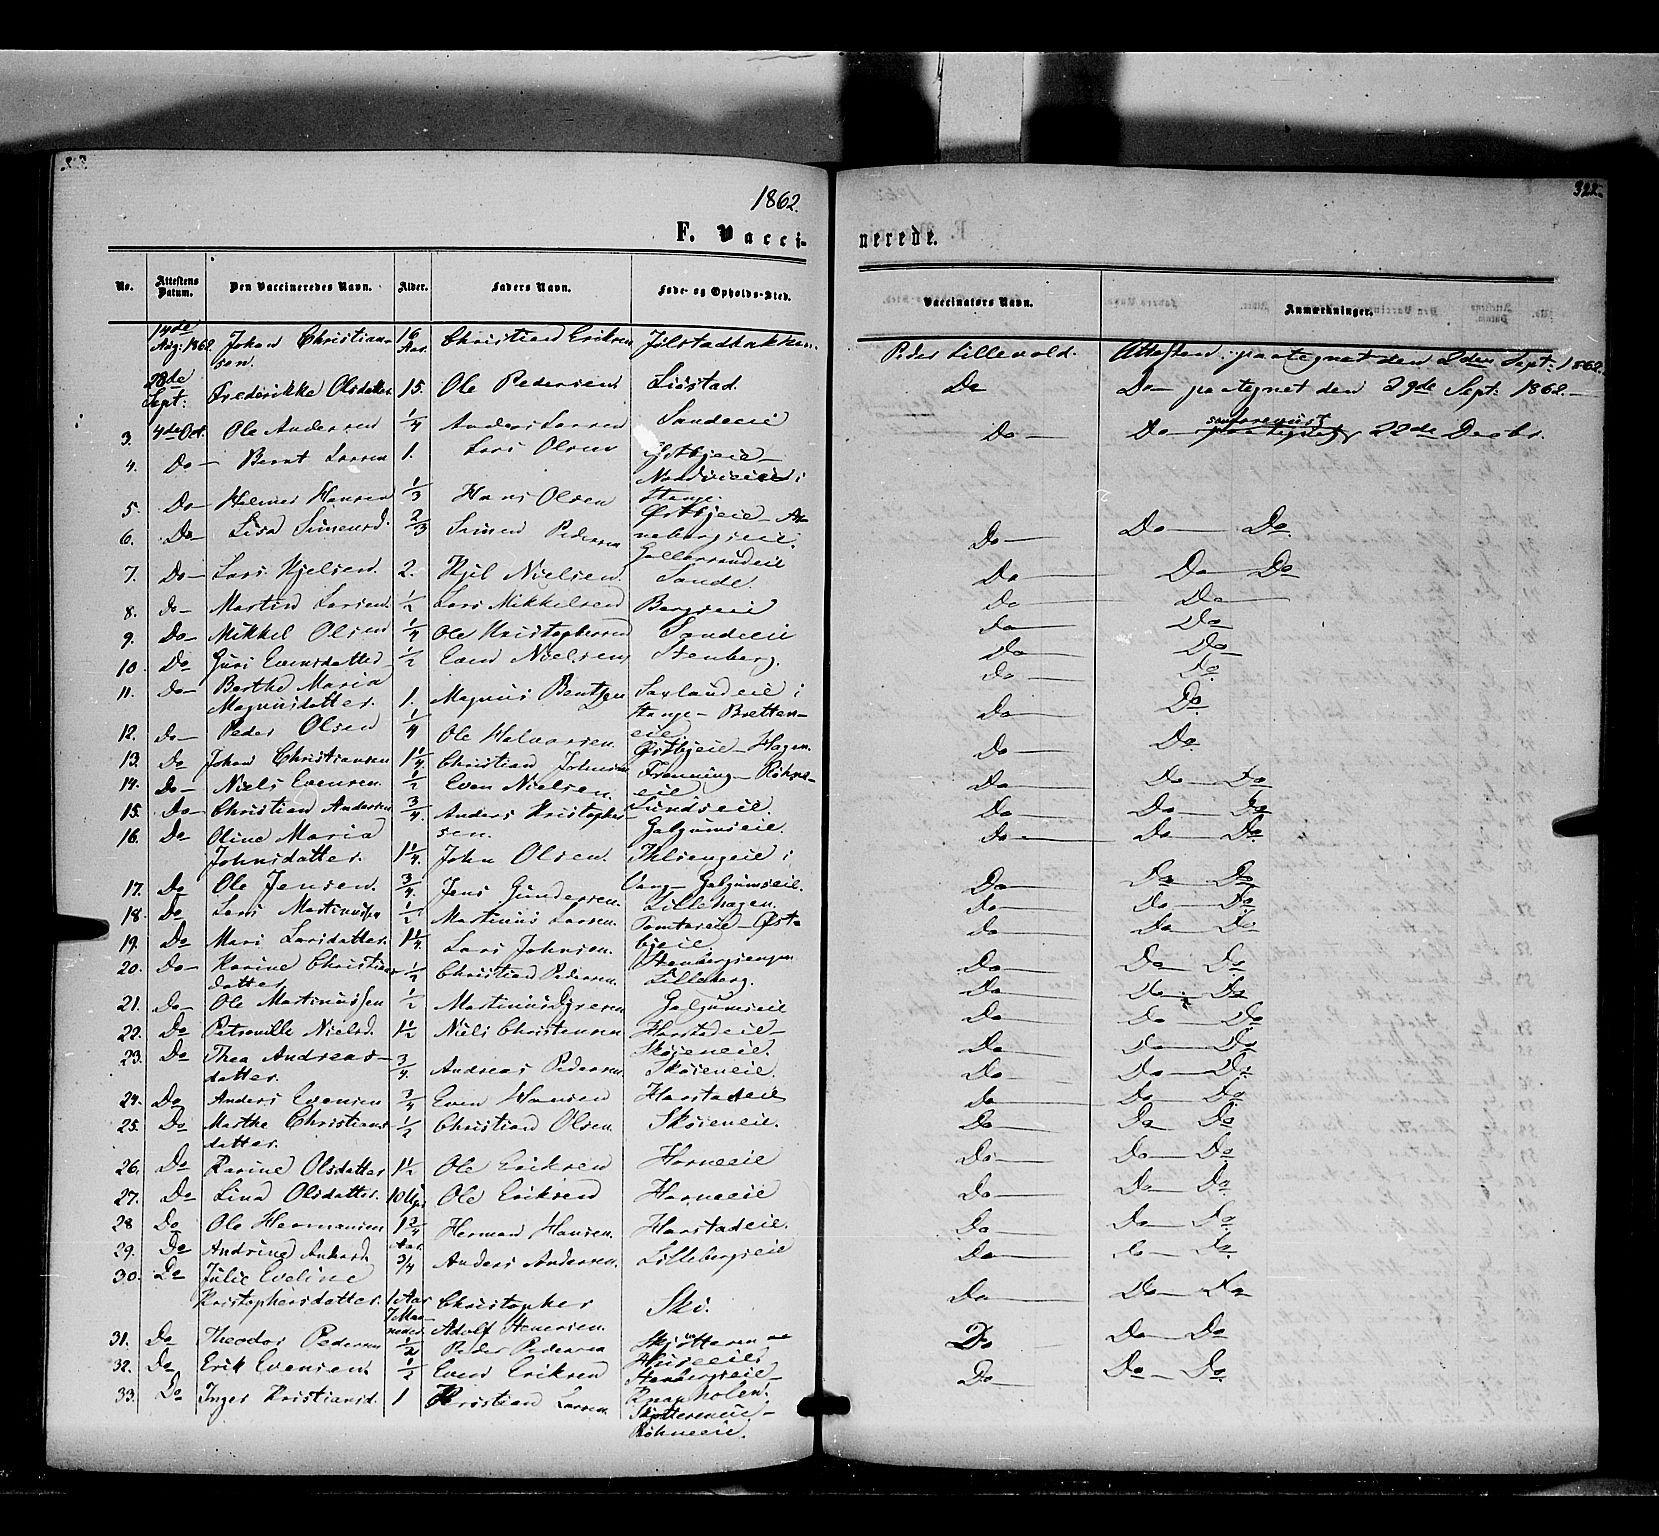 322.
1862.
F. Vacci-
nerede.
No.
Attestens Datum.
Den Vaccineredes Navn.
Alder.
Faders Navn.
Føde- og Opholds-Sted.
Vaccinators Navn.
Anmærkninger.
14de Aug: 1862 Johan Christian- 16 Aar. Christian Eriksen Peder Lillevold. Attesten paategnet den 2den Sept: 1862.
sen.
28de Sept: Frederikke Olsdatter 15. Ole Pedersen Lisstad. Do Do paategnet den 29de Sept: 1862.
3. 4de Oct. Ole Andersen 1/4 Anders Larsen Sandeeie Do Do 22de Decbr.
4. Do Bernt Larsen 1. Lars Olsen Østbyeie
5. Do Helmer Hansen 1/3 Hans Olsen Stange.
6. Do Lisa Simensd. 2/3 Simen Pedersen Østbyeie Do Do Do
7. Do Lars Kjelsen. 2. Kjel Nielsen. Sande. Do Do Do
8. Do Martin Larsen. 1/2 Lars Mikkelsen Bergseie Do Do
9. Do Mikkel Olsen 1/4 Ole Kristophersen Sandeeie Do Do
10. Do Guri Evensdatter 1/2 Even Nielsen Stenberg. Do Do
11. Do Berthe Maria Do Do
Magnusdatter. 1. Magnus Bentsen i
Stange
12. Do Peder Olsen 1/4 Ole Halvorsen. eie Do Do
13. Do Johan Christiansen 1 1/4 Christian Johnsen Østbyeie - Hagen. Do Do
14. Do Niels Evensen. 1/2 Even Nielsen. Frenning eie Do Do Do
15. Do Christian Andersen 3/4 Anders Kristopher- Sundseie Do Do Do
sen.
16. Do Oline Maria Galgumseie. Do Do Do
Johnsdatter. 1 1/4. John Olsen. i
17. Do Ole Jensen. 3/4 Jens Gundersen. Vang - Galgumseie. Do Do Do
18. Do Lars Martinussen 1/2 Martinus Larsen. Lillehagen. Do Do Do
19. Do Mari Larsdatter. 1 1/4 Lars Johnsen. Tomtereie - Øst- Do Do Do
byeie.
20. Do Karine Christian- 1/2 Christian Pedersen Stenbergsengen Do Do Do
datter Lilleberg.
21. Do Ole Martinussen 1/2 Martinus Galgumseie Do Do Do
22. Do Petronille Nielsd. 1 1/2 Niels Christensen Harstadeie Do Do Do
Skøieneie.
23. Do Thea Andreas- 3/4 Andreas Pedersen. Skøieneie. Do Do Do
datter.
24. Do Anders Evensen 3/4 Even Hansen Harstadeie Do Do Do
25. Do Marthe Christians- 1/2 Christian Olsen Skøieneie. Do Do Do
datter.
26. Do Karine Olsdatter 1 1/2 Ole Eriksen Horneeie Do Do Do
27. Do Lina Olsdatter. 10 Ugr Ole Eriksen Horneeie Do Do Do
28 Do Ole Hermansen 1 3/4 Aar Herman Hansen. Harstadeie. Do Do Do
29. Do Andrine Andersd. 3/4 Anders Andersen. Lillebergseie Do Do Do
30. Do Julie Eveline
Kristophersdatter. 1 Aar 7 Maaneder. Christopher Ski. Do Do Do
Adolf
31. Do Theodor Pedersen 1/2 Peder Pedersen Do Do Do
32. Do Erik Evensen. 1/2 Even Eriksen Stenbergseie Do Do Do
33. Do Inger Kristiansd. 1 Kristian Larsen